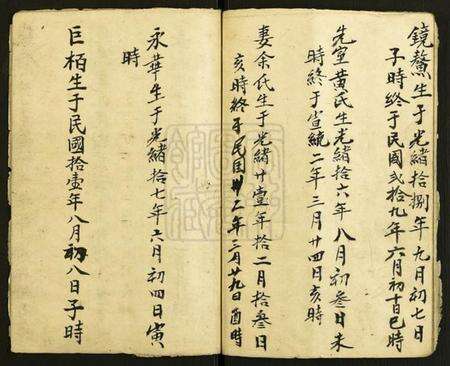 鏡鰲生于光緒拾捌年九月初七日
子時終于民國弍拾九年六月初十日巳時
先室黄氏生光緒拾六年八月初叁日未
時終于宣統二年三月廿四日亥時
妻余氏生于光緒廿壹年拾二月拾叁日
亥時終于民国卅二年二月廿九日酉時
永華生于光緒拾七年六月初四日寅
時
巨栢生于民國拾壹年八月初八日子時